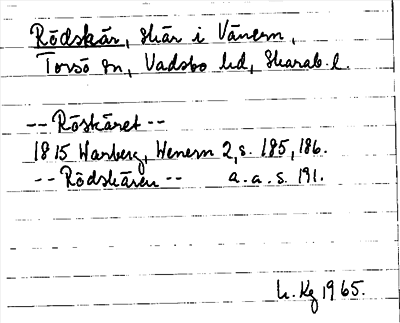 Rödskär, skär i Vänern,
Torsö sn, Vadsbo hd, Skarab. l.
-- Röskäret --
1815 Warberg, Wenern 2, s. 185, 186.
-- Rödskären -- a. a. s. 191.
L. Kg 1965.